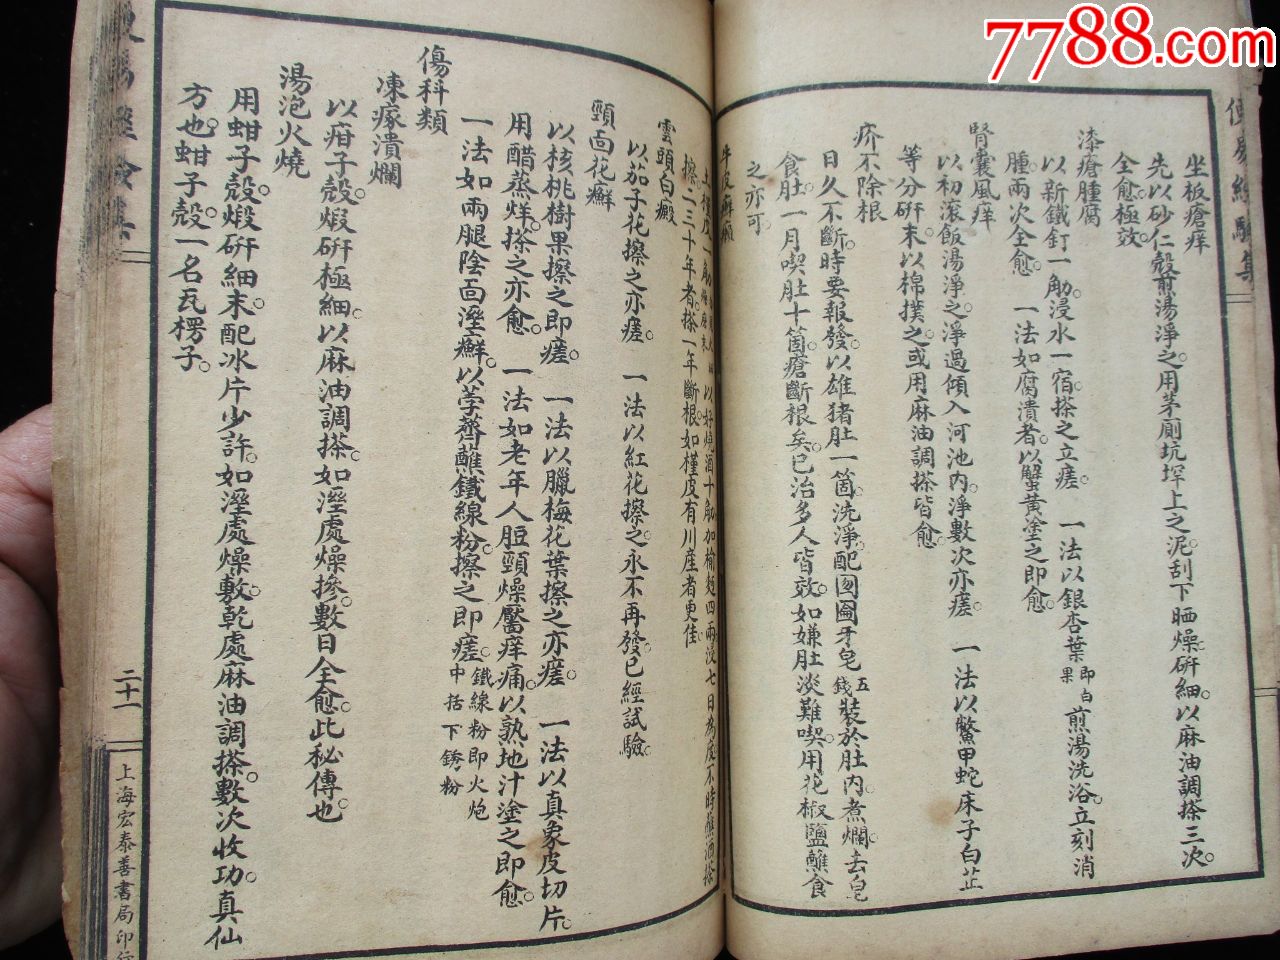 7788.com
坐板瘡痒
先以砂仁殼煎湯淨之。用茅厠坑垾上之泥。刮下晒燥。研細。以麻油調搽三次。
全愈極效。
漆瘡腫腐
以新鐵釘一觔。浸水一宿。搽之立瘥。　一法以銀杏葉即白果煎湯洗浴。立刻消
腫。兩次全愈。　一法如腐潰者。以蟹黃塗之即愈。
腎囊風痒
以初滾飯湯淨之。淨過傾入河池內。淨數次亦瘥。　一法以鱉甲蛇床子白芷
等分研末。以棉撲之。或用麻油調搽皆愈。
疥不除根
日久不斷。時要報發。以雄猪肚一箇。洗淨。配囫圇牙皂五錢裝於肚內。煮爛。去皂
食肚。一月喫肚十箇。瘡斷根矣。已治多人皆效。如嫌肚淡難喫。用花椒鹽蘸食
之亦可。
牛皮癬癩
土槿皮一觔
以好燒酒十觔。加榆麵四兩。浸七日為度。不時蘸酒搽
搽。二三十年者。搽一年斷根。如槿皮有川產者更佳。
雲頭白癜
以茄子花擦之亦瘥。　一法以紅花擦之。永不再發。已經試驗。
頸面花癬
以核桃樹果擦之即瘥。　一法以臘梅花葉擦之亦瘥。　一法以真象皮切片。
用醋蒸烊。搽之亦愈。　一法如老年人脰頸燥靨痒痛。以熟地汁塗之即愈。
一法如兩腿陰面溼癬。以荸薺蘸鐵線粉。擦之即瘥。鐵線粉即火炮中括下銹粉
傷科類
凍瘃潰爛
以蚶子殼。煆硏極細。以麻油調搽。如溼處燥摻。數日全愈。此秘傳也。
湯泡火燒
用蚶子殼。煆硏細末。配冰片少許。如溼處燥敷。乾處麻油調搽。數次收功。真仙
方也。蚶子殼。一名瓦楞子。
二十一
上海宏泰善書局印行